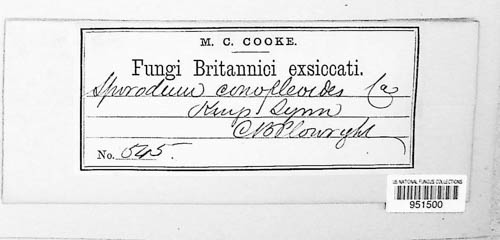 M. C. COOKE.
Fungi Britannici exsiccati.
Sporodum conopleoides Ca
King's Lynn
C B Plowright
No. 545.
US NATIONAL FUNGUS COLLECTIONS
951500